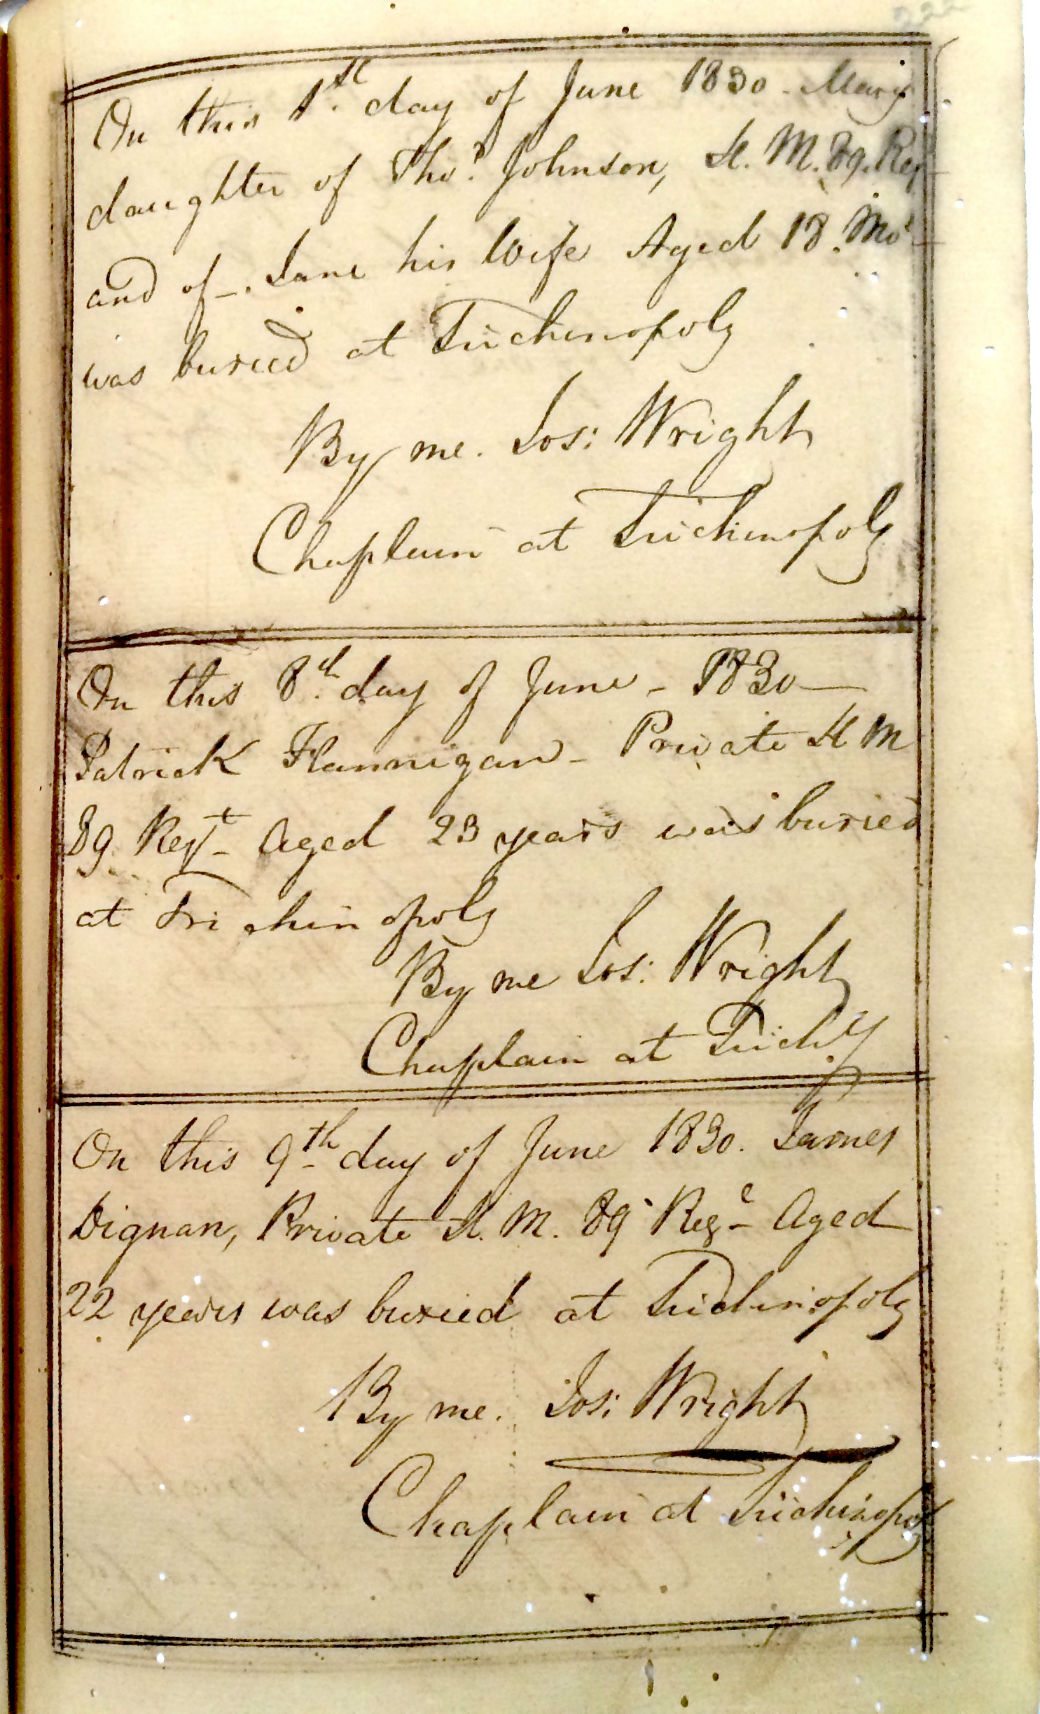 222
On this 1st day of June 1830 - Mary
daughter of Thos. Johnson, H. M. 89. Reg
and of -. Jane his Wife Aged 18. Mos
was buried at Trichinopoly
By me. Jos: Wright
Chaplain at Trichinopoly
On this 8th day of June - 1830 -
Patrick Flannigan - Private H M
89. Regt - Aged 23 years was buried
at Trichinopoly
By me Jos: Wright
Chaplain at Trichy
On this 9th day of June 1830. James
Dignan, Private H. M. 89 Regt - Aged
22 years was buried at Trichinopoly
By me. Jos: Wright
Chaplain at Trichinopoly